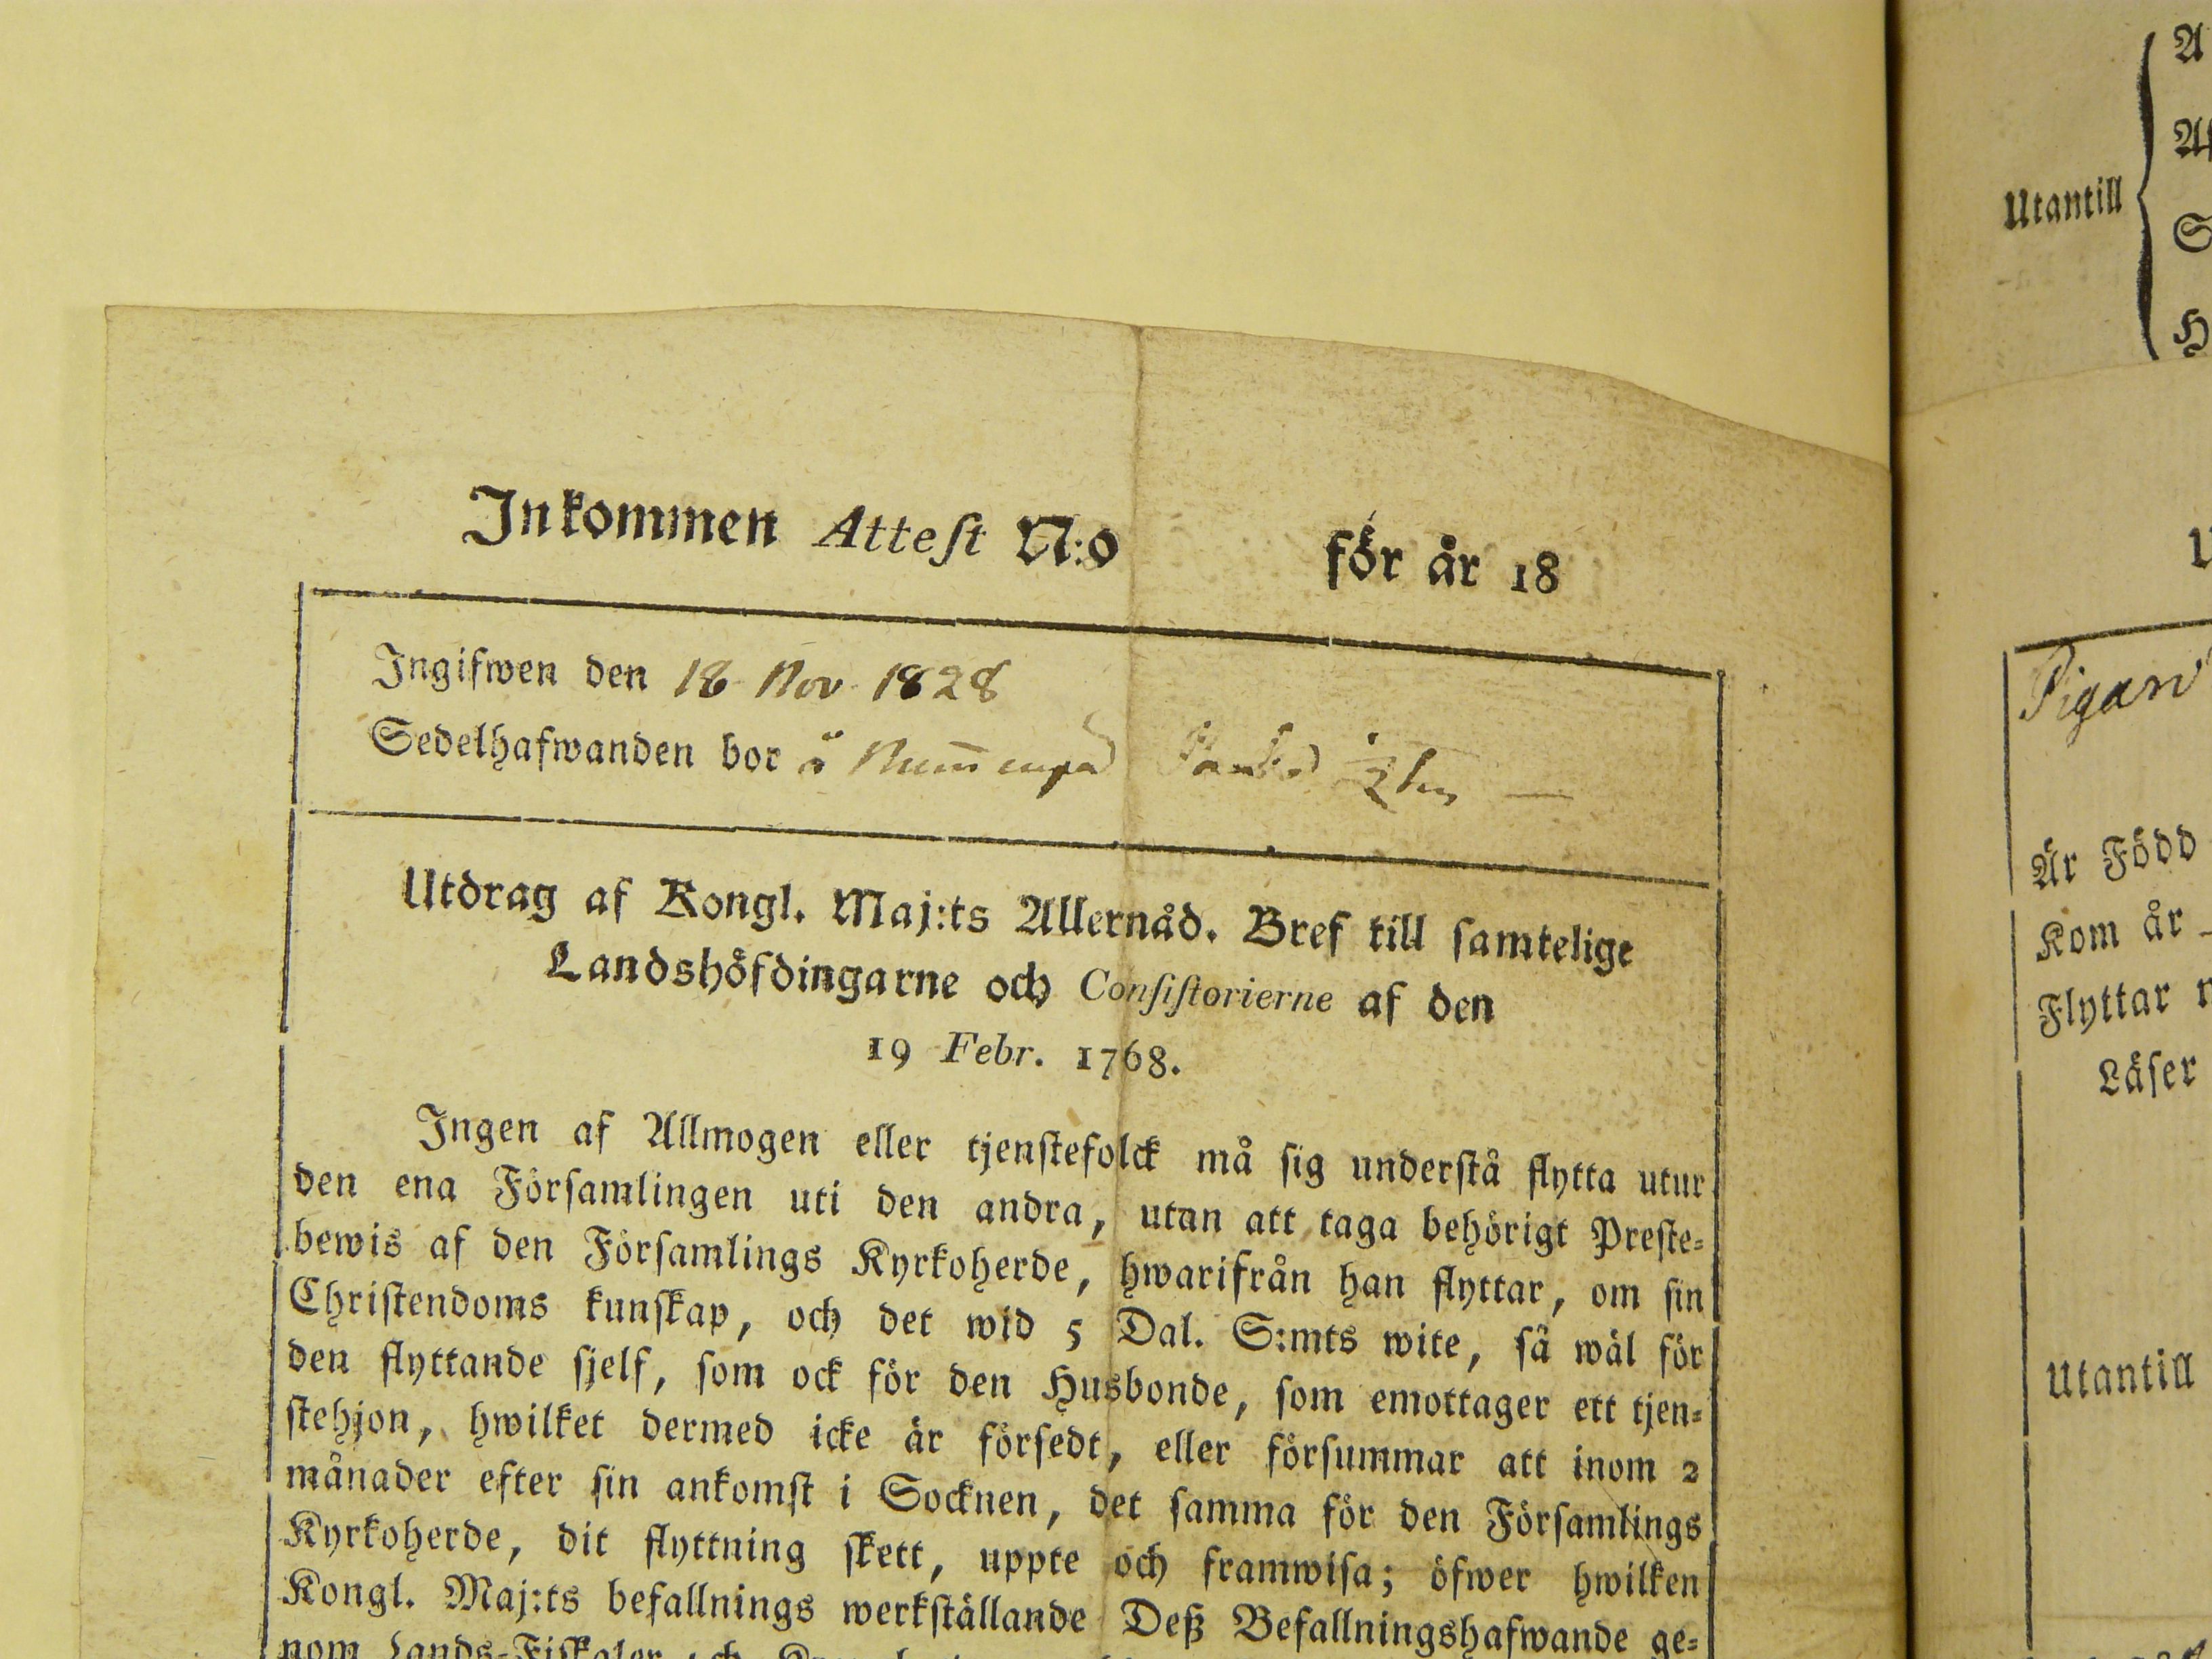 Inkommen Attest N:o för år 18
Ingifwen den 18 Nov 1828
Sedelhafwanden bor å
Utdrag af Kongl. Maj:ts Allernåd. Bref till samtelige
Landshöfdingarne och Consistorierne af den
19 Febr. 1768.
Ingen af Allmogen eller tjenstefolck må sig understå flytta utur
den ena Församlingen uti den andra, utan att taga behörigt Preste-
bewis af den Församlings Kyrkoherde, hwarifrån han flyttar, om sin
Christendoms kunskap, och det wid 5 Dal. S:mts wite, så wäl för
den flyttande sjelf, som ock för den Husbonde, som emottager ett tjen-
stehjon, hwilket dermed icke är försedt, eller försummar att inom 2
månader efter sin ankomst i Socknen, det samma för den Församlings
Kyrkoherde, dit flyttning skett, uppte och framwisa; öfwer hwilken
Kongl. Maj:ts befallnings werkställande Deß Befallningshafwande ge-
nom Lands-Fiskaler och
Utantill
Pigan
Är Född
Kom år
Flyttar
Läser
Utantill